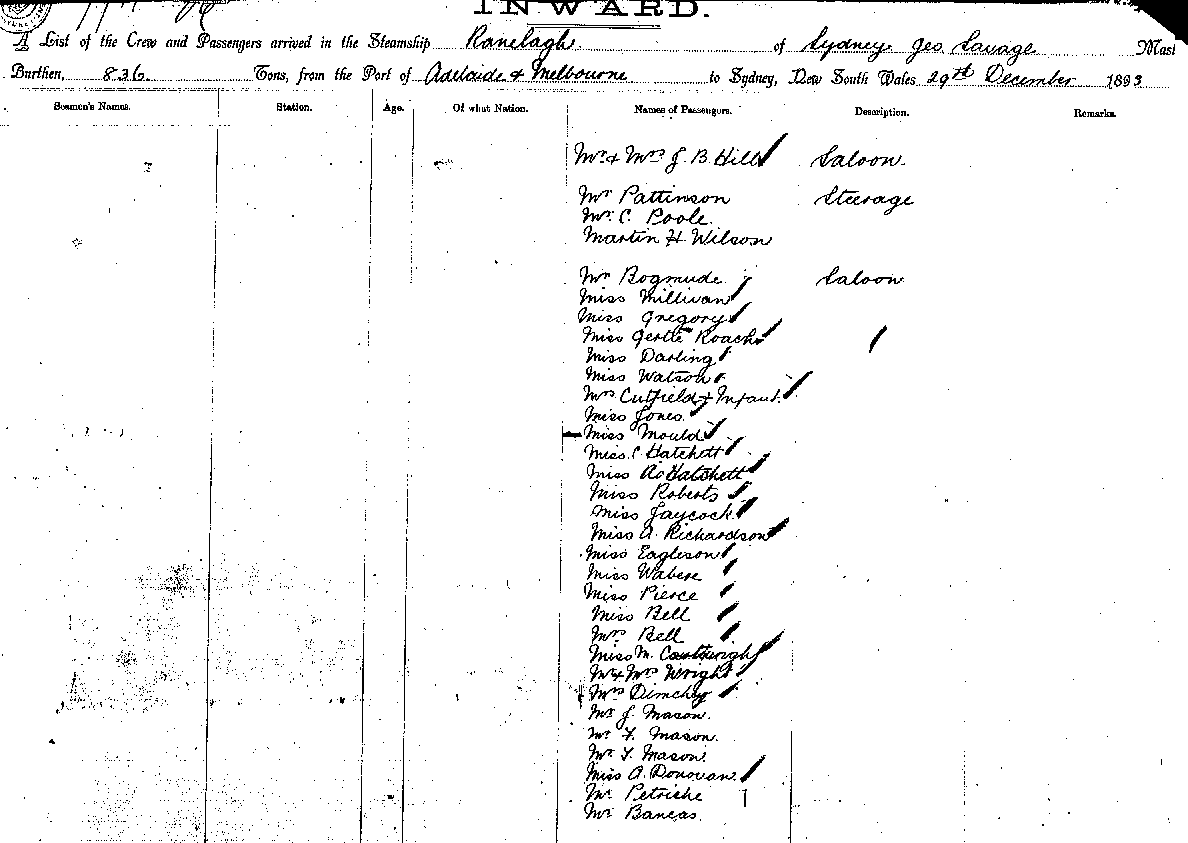 INWARD.
A List of the Crew and Passengers arrived in the Steamship Ranelagh of Sydney Geo Savage Mast
Burthen, 836 Tons, from the Port of Adelaide & Melbourne to Sydney, New South Wales 29th December 1893
Seamen's Names. Station. Age. Of what Nation. Names of Passengers. Description. Remarks.
Mr & Mrs J. B. Hill Saloon
Mr Pattinson Steerage
Mr C. Poole
Martin H. Wilson
Mr Bogmude Saloon
Miss Millivan
Miss Gregory
Miss Gertie Roach
Miss Darling
Miss Watson
Mrs Cutfield & Infant
Miss Jones
Miss Mould
Miss C Hatchett
Miss A Hatchett
Miss Roberts
Miss Jaycock
Miss A. Richardson
Miss Eagleson
Miss Wabese
Miss Pierce
Miss Bell
Mrs Bell
Miss M. Cartwright
Mr & Mrs Wright
Mrs
Mr J. Mason.
Mr Mason.
Mr Mason.
Miss A. Donovan
Mr Petriche
Mr Bancas